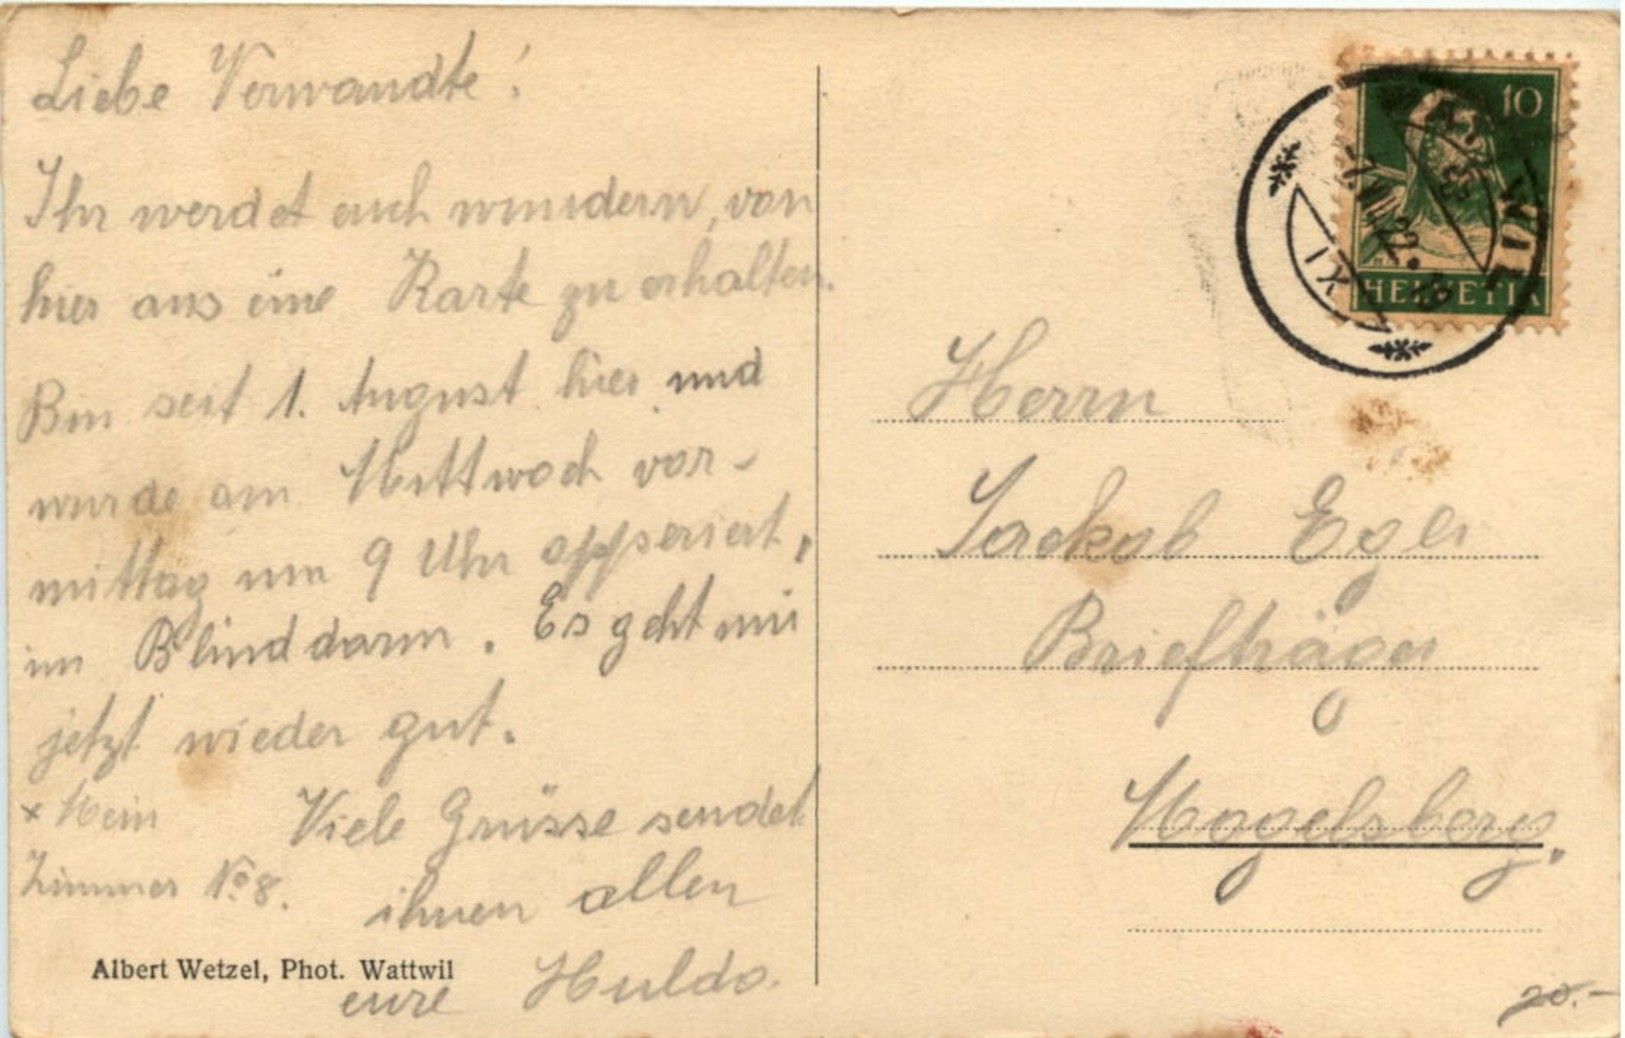 Liebe Verwandte!
Ihr werdet euch wundern, von
hier aus eine Karte zu erhalten.
Bin seit 1. August hier und
wurde am Mittwoch vor-
mittag um 9 Uhr opperiert,
im Blinddarm. Es geht mir
jetzt wieder gut.
× Mein
Zimmer No 8.
Viele Grüsse sendet
ihnen allen
eure Hulda.
Albert Wetzel, Phot. Wattwil
10
HELVETIA
WIL
22
XI
Herrn
Jackob Egli
Briefträger
Mogelsberg.
20.-